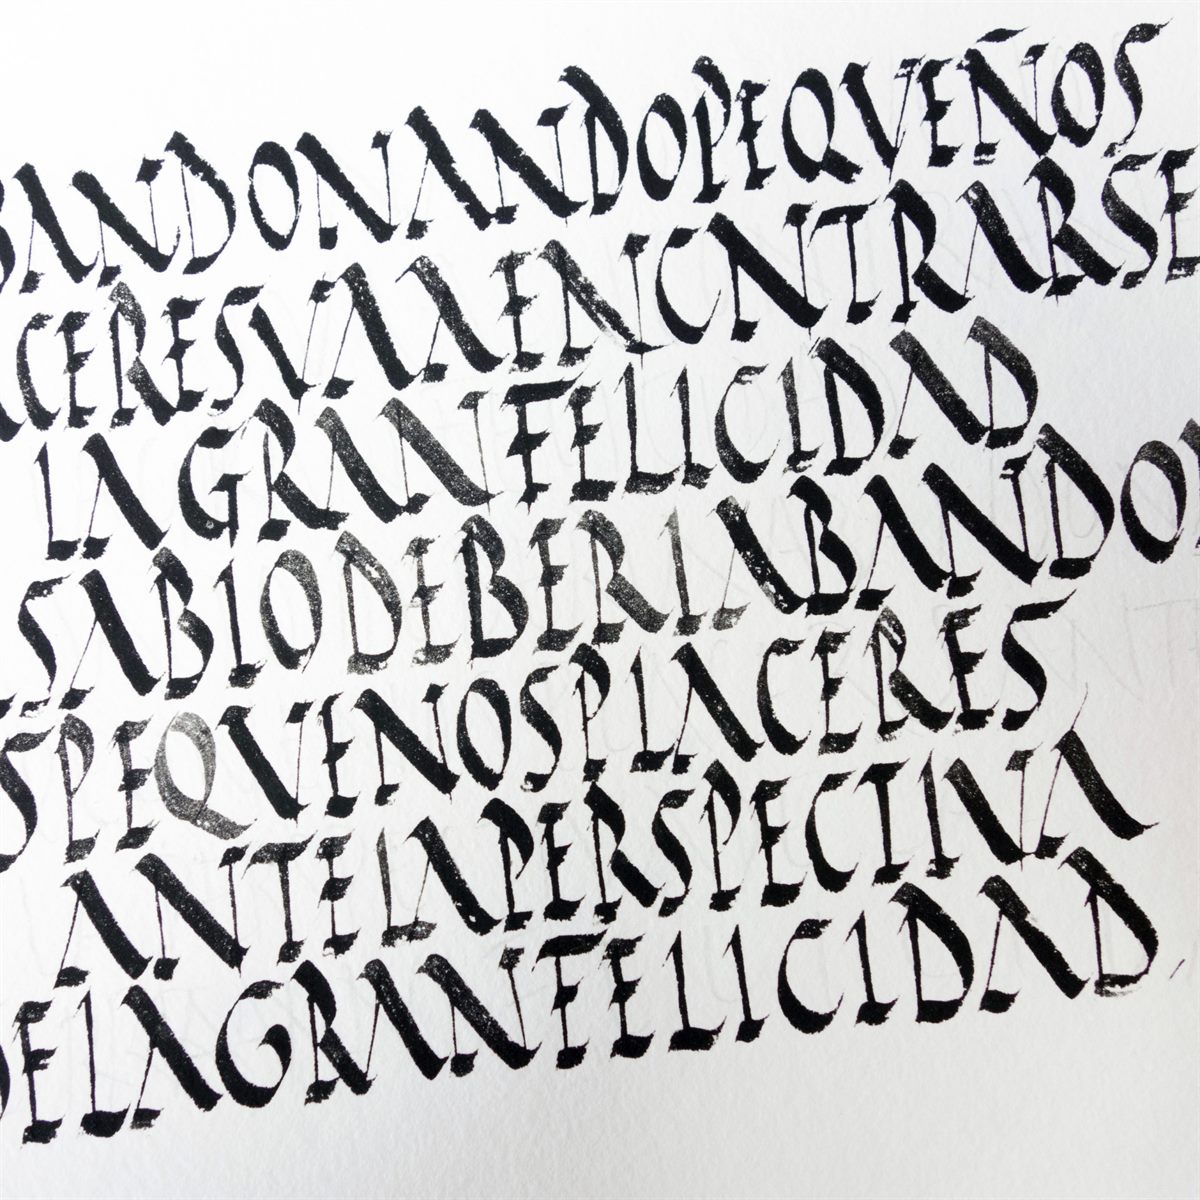 BANDONANDOPEQUEÑOS
ACERESVAAENCNTRARSE
LAGRANFELICIDAD
SABIODEBERIABANDON
SPEQUENOSPLACERES
ANTELAPERSPECTIVA
DELAGRANFELICIDAD